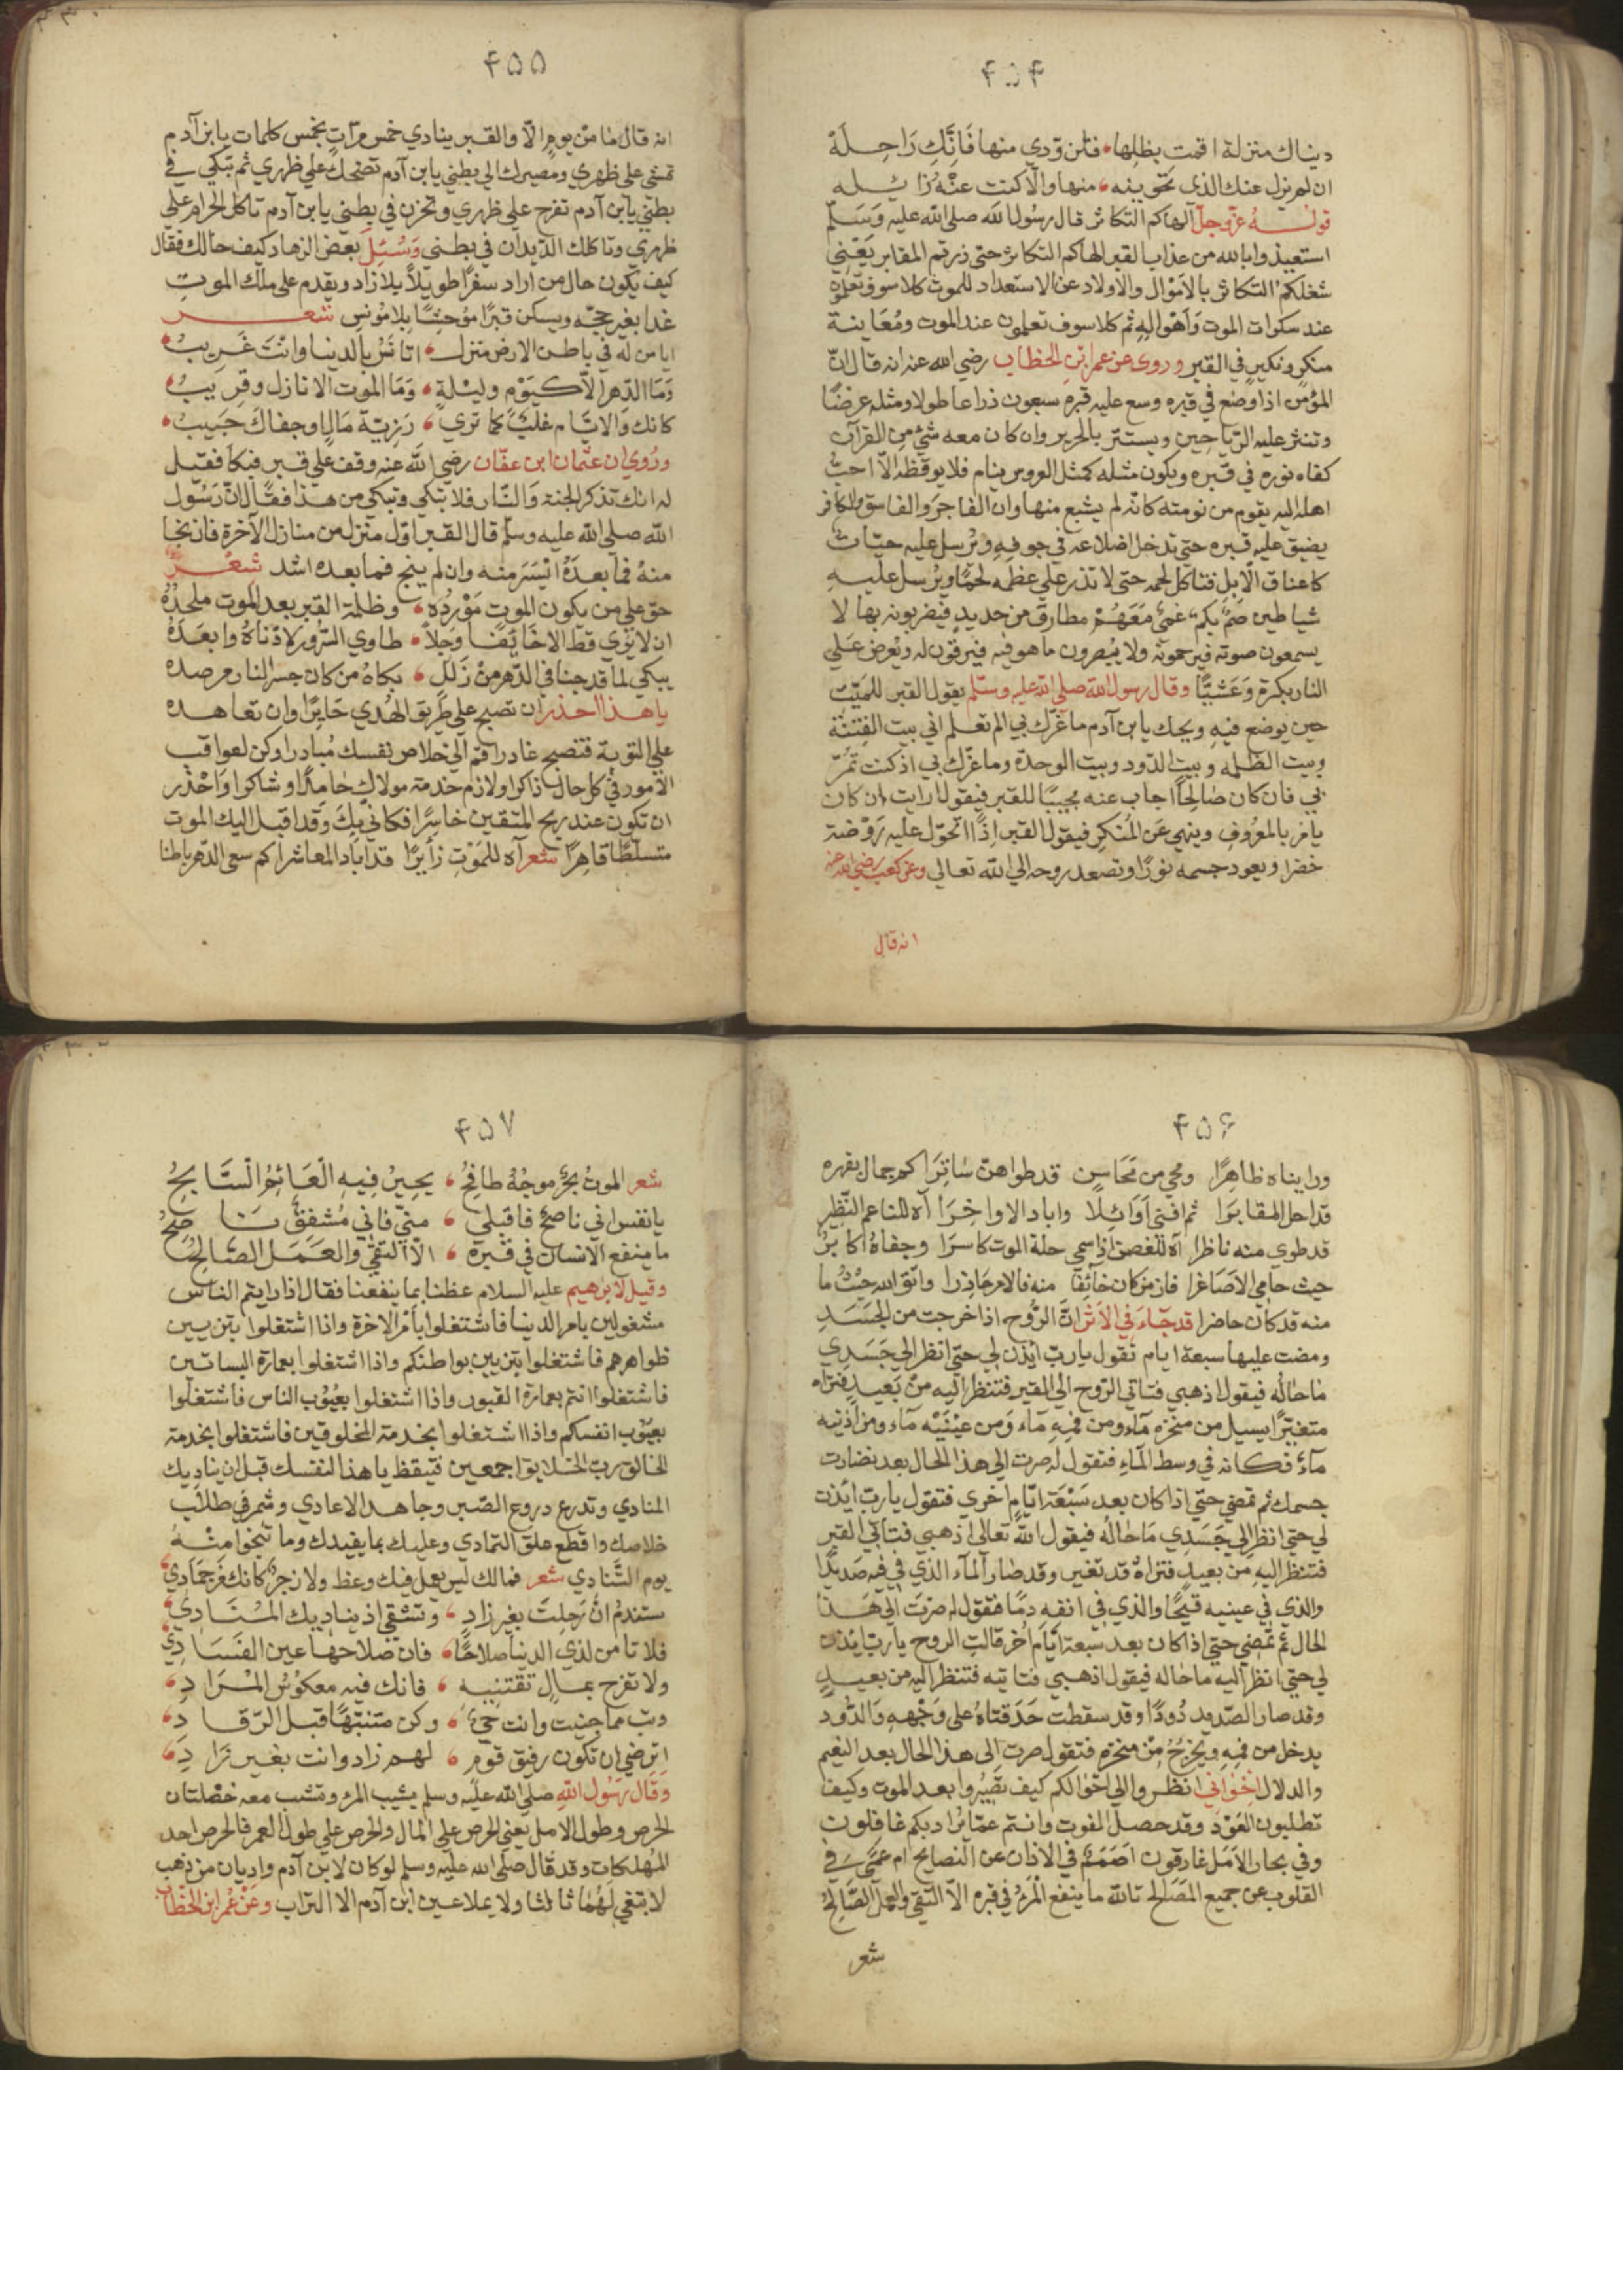 ۴۵۴
دنياك منزلة اقمت بظلها فلن تؤدي منها فانك راحلة
ان لم يزل عنك الذي تحوينه منها والا كنت عنه زائله
قوله عز وجل الهاكم التكاثر قال رسول الله صلى الله عليه وسلم
استعيذوا بالله من عذاب القبر الهاكم التكاثر حتى زرتم المقابر يعني
شغلكم التكاثر بالاموال والاولاد عن الاستعداد للموت كلا سوف تعلمون
عند سكرات الموت واهواله ثم كلا سوف تعلمون عند الموت ومعاينة
منكر ونكير في القبر وروى عن عمر ابن الخطاب رضي الله عنه انه قال ان
المؤمن اذا وضع في قبره وسع عليه قبره سبعون ذراعا طولا ومثله عرضا
وتنثر عليه الرياحين ويستتر بالحرير وان كان معه شئ من القرآن
كفاه نوره في قبره ويكون مثله كمثل العروس ينام فلا يوقظه الا احب
اهله اليه يقوم من نومته كانه لم يشبع منها وان الفاجر والفاسق والكافر
يضيق عليه قبره حتي تدخل اضلاعه في جوفه وترسل عليه حيات
كاعناق الابل فتاكل لحمه حتى لا تذر علي عظمه لحما ويرسل عليه
شياطين صم بكم عمي معهم مطارق من حديد فيضربونه بها لا
يسمعون صوته فيرحمونه ولا يبصرون ما هو فيه فيرقون له ويعرض علي
النار بكرة وعشيا وقال رسول الله صلى الله عليه وسلم يقول القبر للميت
حين يوضع فيه ويحك يا ابن آدم ما غرك بي الم تعلم اني بيت الفتنة
وبيت الظلمه وبيت الدود وبيت الوحدة وما غرك بي اذ كنت تمر
بي فان كان صالحا اجاب عنه مجيبا للقبر فيقول ارايت ان كان
يامر بالمعروف وينهي عن المنكر فيقول القبر اذا اتحول عليه روضة
خضرا ويعود جسمه نورا وتصعد روحه الي الله تعالي وعن كعب رضي الله عنه
انه قال
۴۵۵
انه قال ما من يوم الا والقبر ينادي خمس مرات بخمس كلمات يا ابن آدم
تمشي على ظهري ومصيرك الي بطني يا ابن آدم تضحك علي ظهري ثم تبكي في
بطني يا ابن آدم تفرح على ظهري وتحزن في بطني يا ابن آدم تاكل الحرام على
ظهري وتاكلك الديدان في بطني وسئل بعض الزهاد كيف حالك فقال
كيف يكون حال من اراد سفرا طويلا بلا زاد ويقدم على ملك الموت
غدا بغير حجة ويسكن قبرا موحشا بلا مونس شعر
ايا من له في باطن الارض منزل اتانس بالدنيا وانت غريب
وما الدهر الا كيوم وليلة وما الموت الا نازل وقريب
كانك والايام غلث كما تري رزية مال او جفاك حبيب
وروي ان عثمان ابن عفان رضي الله عنه وقف علي قبر فبكا فقيل
له انك تذكر الجنة والنار فلا تبكي وتبكي من هذا فقال ان رسول
الله صلى الله عليه وسلم قال القبر اول منزل من منازل الآخرة فان نجا
منه فما بعده ايسر منه وان لم ينج فما بعده اشد شعر
حق علي من يكون الموت مورده وظلمة القبر بعد الموت ملحده
ان لا يري قط الا خائفا وجلا طاوي السرور لادناه وابعده
يبكي لما قد جنا في الدهر من زلل بكاه من كان جسر النار مرصده
يا هذا احذر ان تصبح علي طريق الهدي حايرا وان تعاهده
علي التوبة فتصبح غادرا قم الي خلاص نفسك مبادرا وكن لعواقب
الامور في كل حال ذاكرا ولازم خدمة مولاك حامدا وشاكرا واحذر
ان تكون عند ربح المتقين خاسرا فكاني بك وقد اقبل اليك الموت
متسلطا قاهرا شعر آه للموت زايرا قد اباد المعاشرا كم سعى الدهر باطنا
۴۵۶
ورايناه ظاهرا ومحي من محاسن قد طواهن ساترا كم جمال بقهره
قد احل المقابرا ثم افني اوائلا واباد الاواخرا آه للناعم النظر
قد طوي منه ناظرا آه للغصن اذ سمي حلة الموت كاسرا وجفاه اكابر
حيث حامي الاصاغرا فاز من كان خائفا منه فالامر حاذرا واتق الله حيث ما
منه قد كان حاضرا قد جاء في الاثر ان الروح اذا خرجت من الجسد
ومضت عليها سبعة ايام تقول يا رب ايذن لي حتي انظر الي جسدي
ما حاله فيقول اذهبي فتاتي الروح الي القبر فتنظر اليه من بعيد فتراه
متغيرا يسيل من منخره ماء ومن فمه ماء ومن عينيه ماء ومن اذنيه
ماء فكانه في وسط الماء فتقول له صرت الى هذا الحال بعد نضارت
جسمك ثم تمضي حتي اذا كان بعد سبعة ايام اخري فتقول يا رب ايذن
لي حتي انظر الي جسدي ما حاله فيقول الله تعالى اذهبي فتاتي القبر
فتنظر اليه من بعيد فتراه قد تغير وقد صار الماء الذي في فيه صديدا
والذي في عينيه قيحا والذي في انفه دما فتقول له صرت الى هذا
الحال ثم تمضي حتي اذا كان بعد سبعة ايام اخر قالت الروح يا رب ايذن
لي حتي انظر اليه ما حاله فيقول اذهبي فتاتيه فتنظر اليه من بعيد
وقد صار الصديد دودا وقد سقطت حدقتاه على وجهه والدود
يدخل من فمه ويخرج من منخره فتقول صرت الى هذا الحال بعد النعيم
والدلال اخواني انظروا الي احوالكم كيف تصيروا بعد الموت وكيف
تطلبون العود وقد حصل الفوت وانتم عما يراد بكم غافلون
وفي بحار الامل غارقون اصمم في الاذان عن النصايح ام عمي في
القلوب عن جميع المصالح تالله ما ينفع المرء في قبره الا التقى والعمل الصالح
شعر
۴۵۷
شعر الموت بحر موجه طافح يحير فيه العائر السابح
يا نفس اني ناصح فاقبلي مني فاني مشفق ناصح
ما ينفع الانسان في قبره الا التقي والعمل الصالح
وقيل لابرهيم عليه السلام عظنا بما ينفعنا فقال اذا رايتم الناس
مشغولين بامر الدنيا فاشتغلوا بامر الاخرة واذا اشتغلوا بتزيين
ظواهرهم فاشتغلوا بتزيين بواطنكم واذا اشتغلوا بعمارة البساتين
فاشتغلوا انتم بعمارة القبور واذا اشتغلوا بعيوب الناس فاشتغلوا
بعيوب انفسكم واذا اشتغلوا بخدمة المخلوقين فاشتغلوا بخدمة
الخالق رب الخلايق اجمعين فتيقظ يا هذا لنفسك قبل ان يناديك
المنادي وتدرع دروع الصبر وجاهد الاعادي وشمر في طلاب
خلاصك واقطع علق التمادي وعليك بما يفيدك وما تنجوا منه
يوم التنادي شعر فمالك ليس يعمل فيك وعظ ولا زجر كانك من جمادي
ستندم ان رحلت بغير زاد وتشقي اذ يناديك المنادي
فلا تامن لذي الدنيا صلاحا فان صلاحها عين الفسادي
ولا تفرح بمال تقتنيه فانك فيه معكوس المراد
وتب مما جنيت وانت حي وكن متنبها قبل الرقاد
اترضي ان تكون رفيق قوم لهم زاد وانت بغير زاد
وقال رسول الله صلى الله عليه وسلم يشيب المرء وتشب معه خصلتان
الحرص وطول الامل يعني الحرص على المال والحرص على طول العمر فالحرص احد
المهلكات وقد قال صلى الله عليه وسلم لو كان لابن آدم واديان من ذهب
لابتغي لهما ثالثا ولا يملا عين ابن آدم الا التراب وعن عمر ابن الخطاب